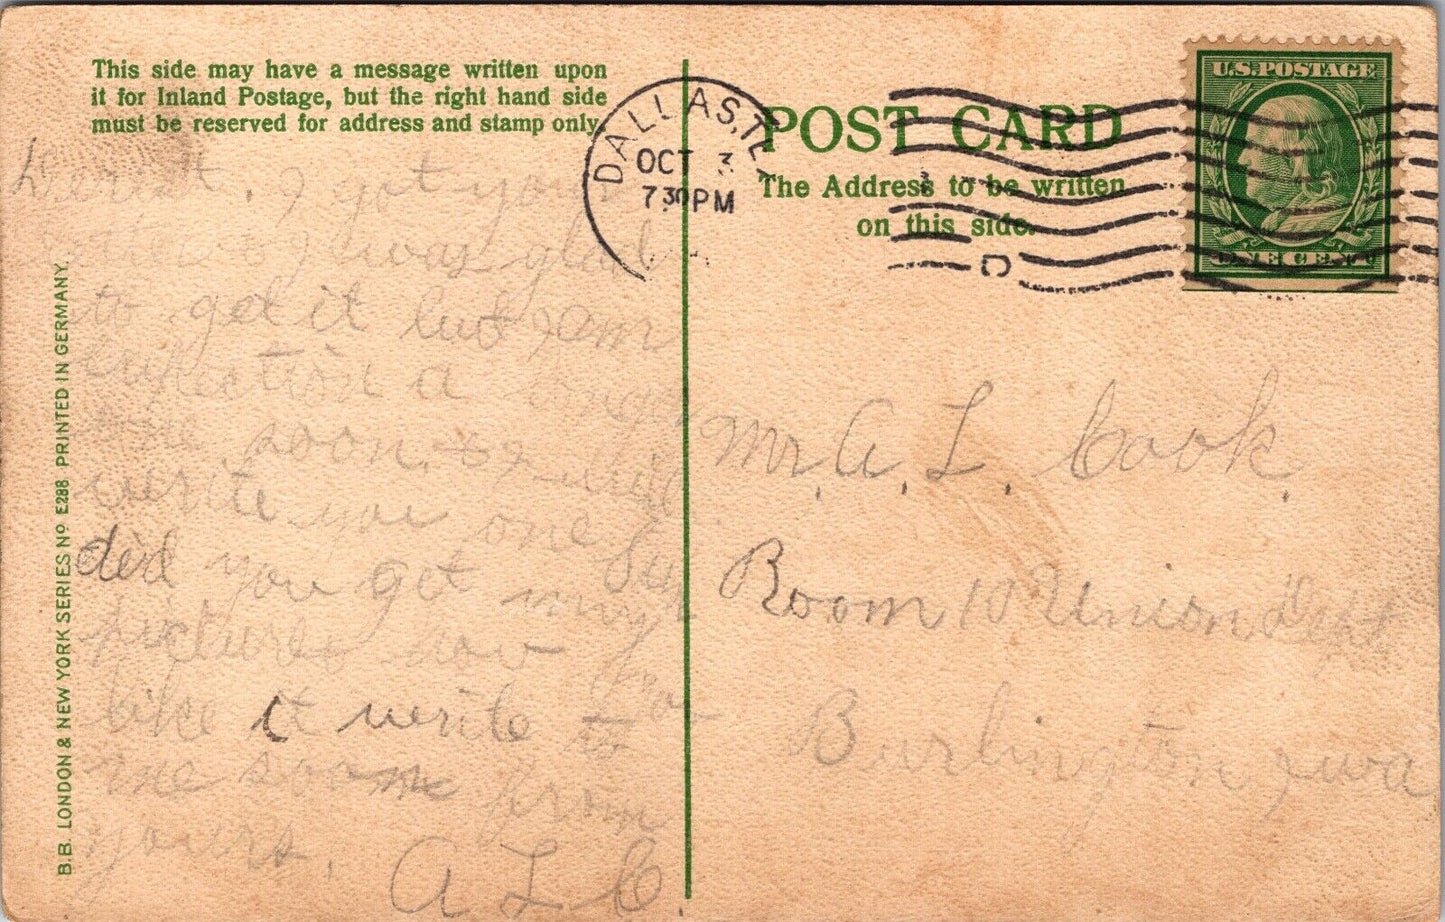 This side may have a message written upon
it for Inland Postage, but the right hand side
must be reserved for address and stamp only.
I got your
I was glad
to get it but I am
a
me soon.
write you one
did you get my
picture how
like it write to
me soon from
yours.
A L C
B.B. LONDON & NEW YORK SERIES Nº E288 PRINTED IN GERMANY.
DALLAS, TEX
OCT 3
7 30 PM
POST CARD
The Address to be written
on this side.
D
U.S. POSTAGE
ONE CENT
Mr. A. L. Cook.
Room 10 Union Dept
Burlington Iowa